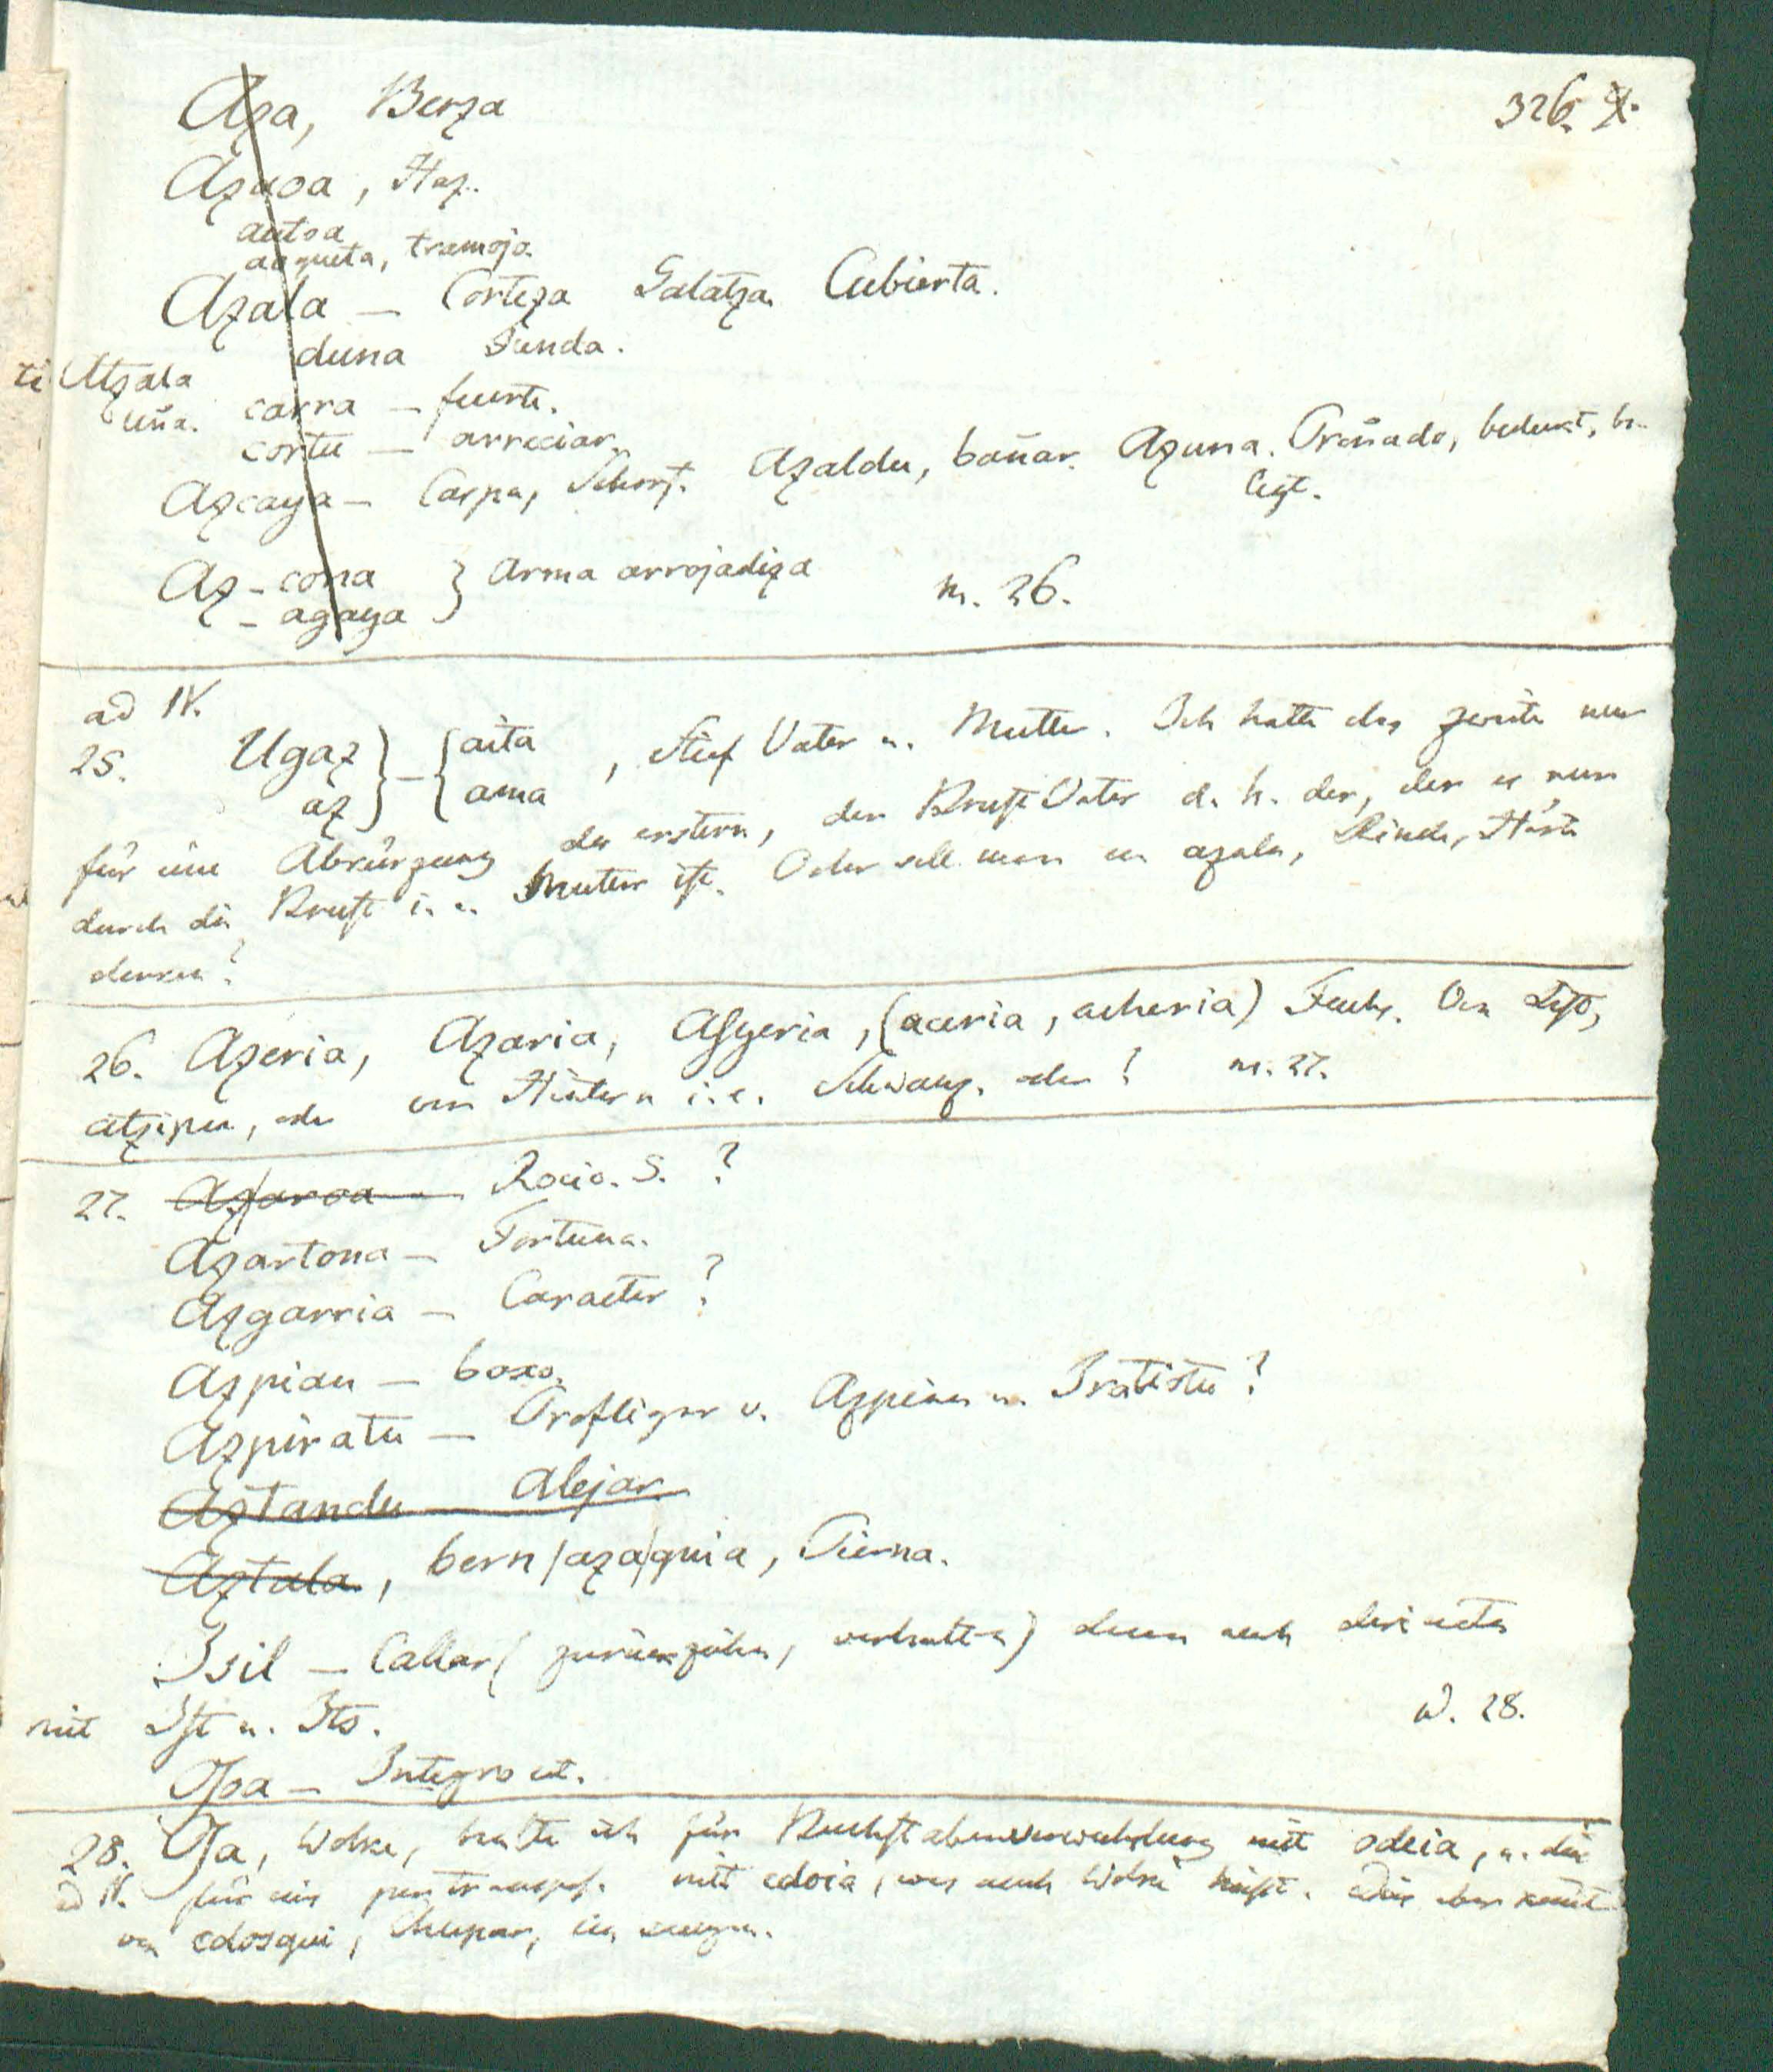 326.
Aza, Berza
Azaoa, Haz.
autsa
aoqueta, tramoja.
Azala — Corteza Galatza. Cubierta.
duna Funda.
Atzala
uña.
carra — fuerte.
cortu — arreciar.
Azcaya — Carpa, Azaldu, bañar. Azuna. bedeckt, be-
legt.
Az - cona } arma arrojadiza
- agaya
n. 26.
ad IV.
25. Ugaz } — { aita , Stief Vater u. Mutter. Ich hatte das zweite nur
az ama
für eine Abkürzung des erstern, der Brust Vater d. h. der, der es nur
durch die Brust i. e. Mutter ist. Oder soll man an azala, Rinde, Härte
denken?
26. Azeria, Azaria, Asgeria, (aceria, acheria) Fuchs. Von List,
atzipea, oder von Hintern i. e. Schwanz. oder? n. 27.
27. Azaroa — Rocio. S. ?
Azartona — Fortuna.
Azgarria — Caracter ?
Azpian — baxo.
Azpiratu — v. Azpian u. Iratistu ?
Aztandu — Alejar
Aztala, bern/aza/quia, Pierna.
Isil — Callar ( zurückziehn, verhalten) denn auch
mit Ist u. Its.
n. 28.
Osa — Integro et.
28. Osa, Wolke, halte ich für Buchstabenverwechslung mit odeia, u. dies
ad IV. für eins per transpos. mit edoia, was auch Wolke heißt. Dies aber kommt
von edosqui, Chupar, saugen.